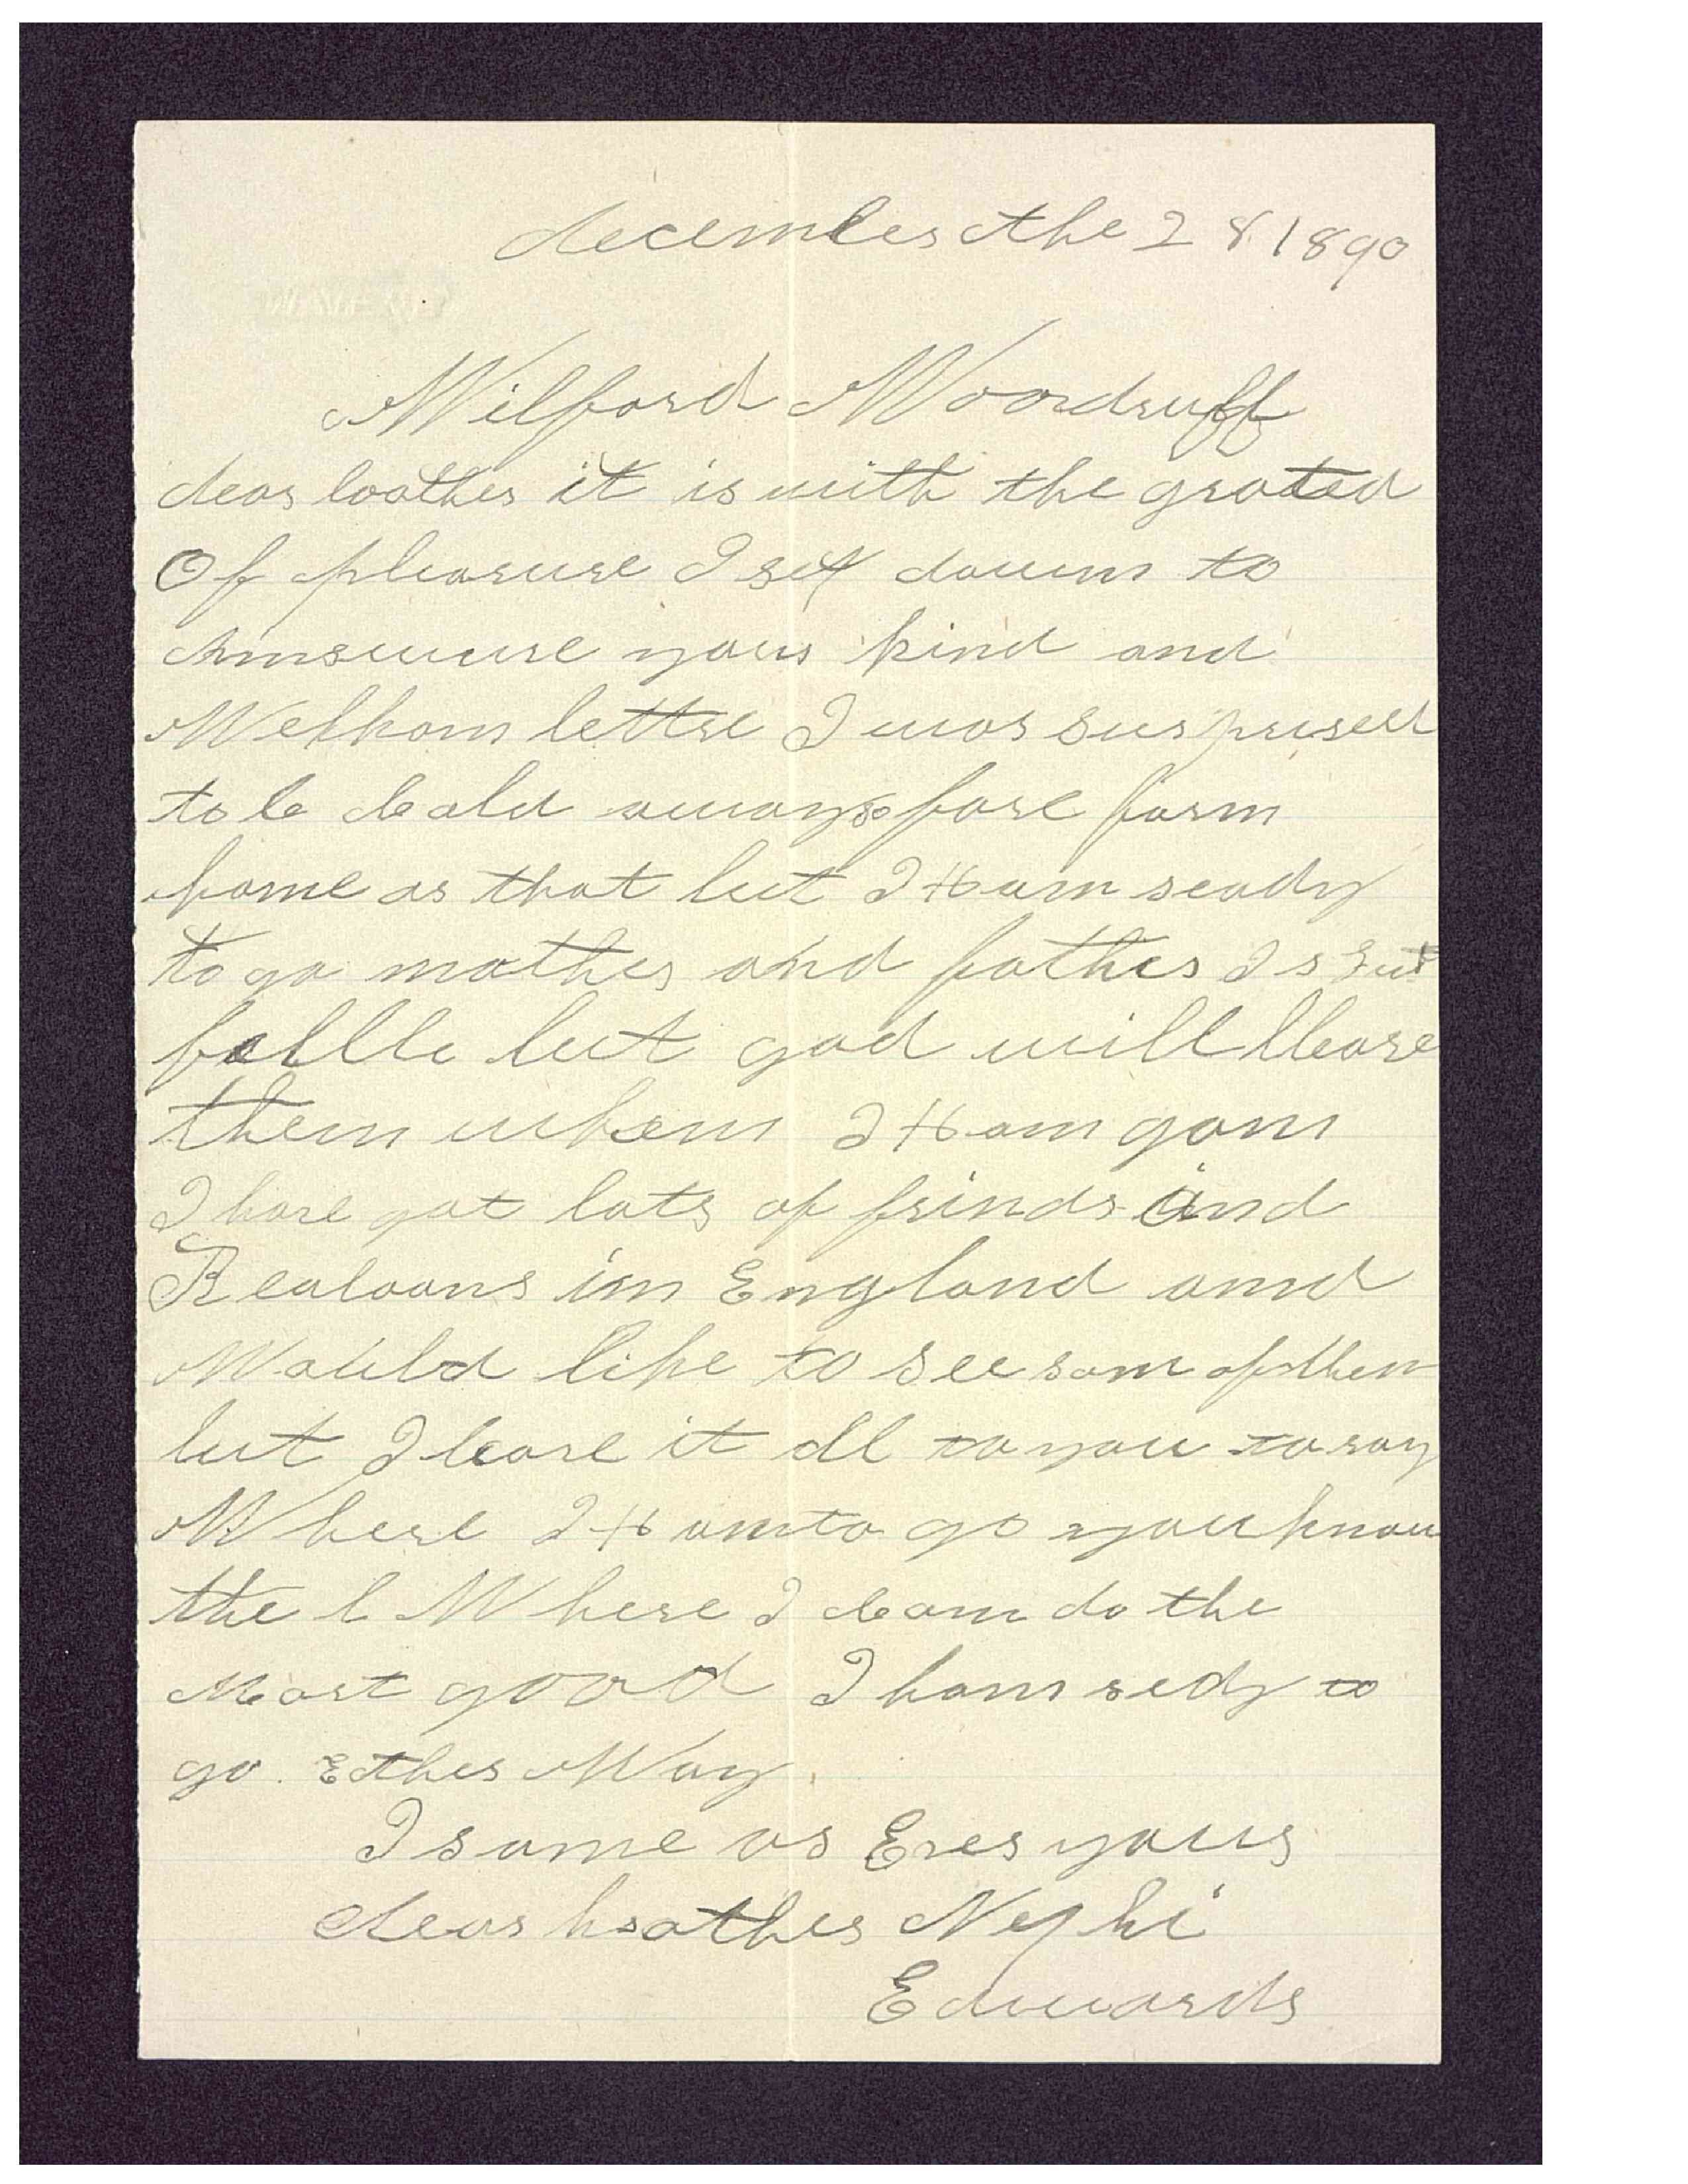 december the 28 1890
Wilford Woodruff
dear boother it is with the grated
Of pleasure I set dowen to
Ansewure your kind and
Welkom lettre I was surprised
to b cald away so fare farm
home as that but I Ham ready
to go mother and father Is
but god will
them when I Ham gon
I have got lots of frinds and
in England and
Would like to see som of them
but I leave it all to you to say
Where I Ham to go you know
the b Where I can do the
Most good I ham redy to
go. Ether Way
I same as Ever your
dear brother Nephi
Edwards